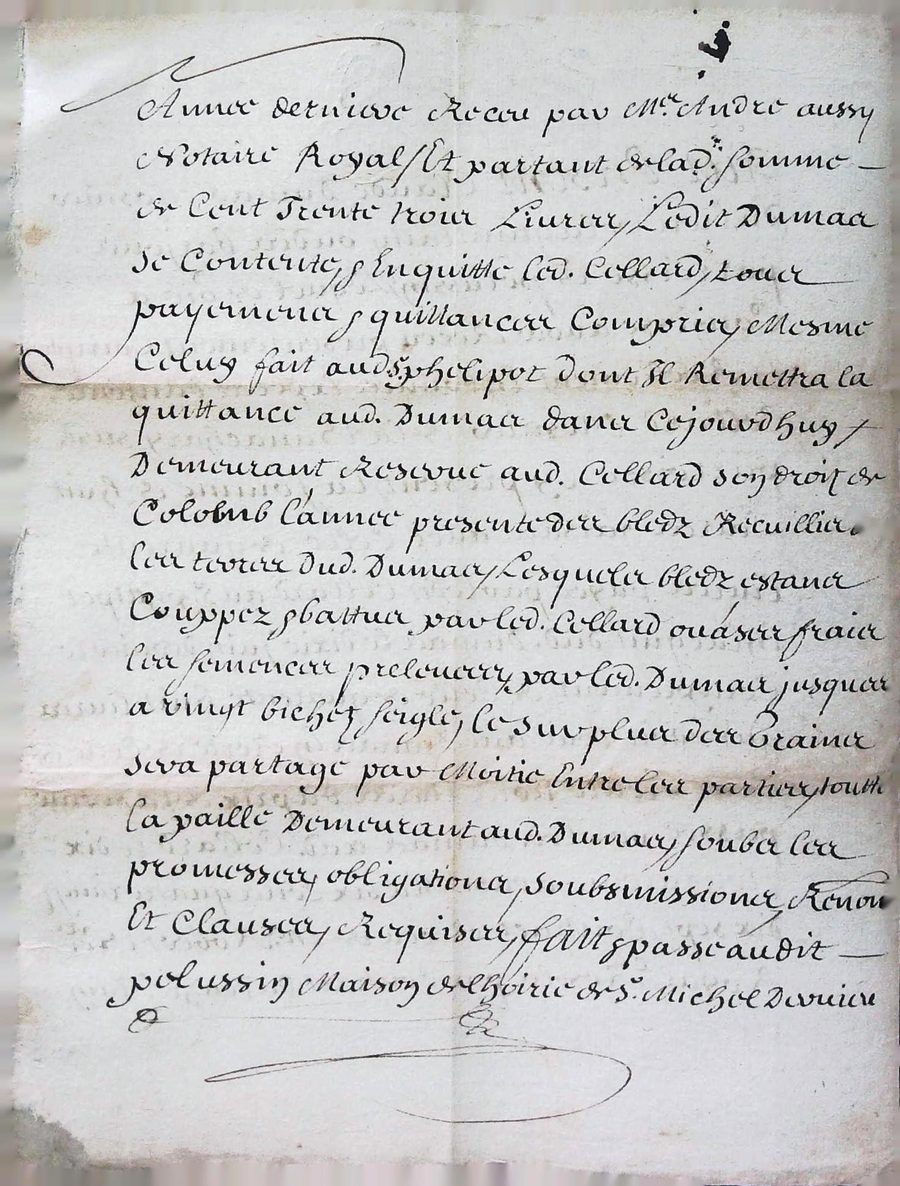 Annee derniere Receu par Me. Andre aussy
Notaire Royal / Et partant de lad. somme —
de Cent Trente trois Livres, Ledit Dumas
se Contente, & Enquitte led. Cellard, tous
payemens & quittances Compris, Mesme
Celuy fait aud. Sr. phelipot dont Il Remettra la
quittance aud. Dumas dans Cejourdhuy /
Demeurant Reserve aud. Cellard son droit de
Colomb l'annee presente des bledz Recuillir
les terres Dud. Dumas, Lesquels bledz estans
Couppez & battus par led. Cellard ou à ses frais
les semences prelevees, par led. Dumas jusques
a vingt bichetz seigle, le surplus des Graines
sera partagé par Moitié Entre les parties, toutte
la paille Demeurant aud. Dumas, soubs les
promesses, obligations, soubsmissions, Renon
Et Clauses, Requises, fait & passe audit —
pelussin Maison de lhoirie de St. Michel Dervieu